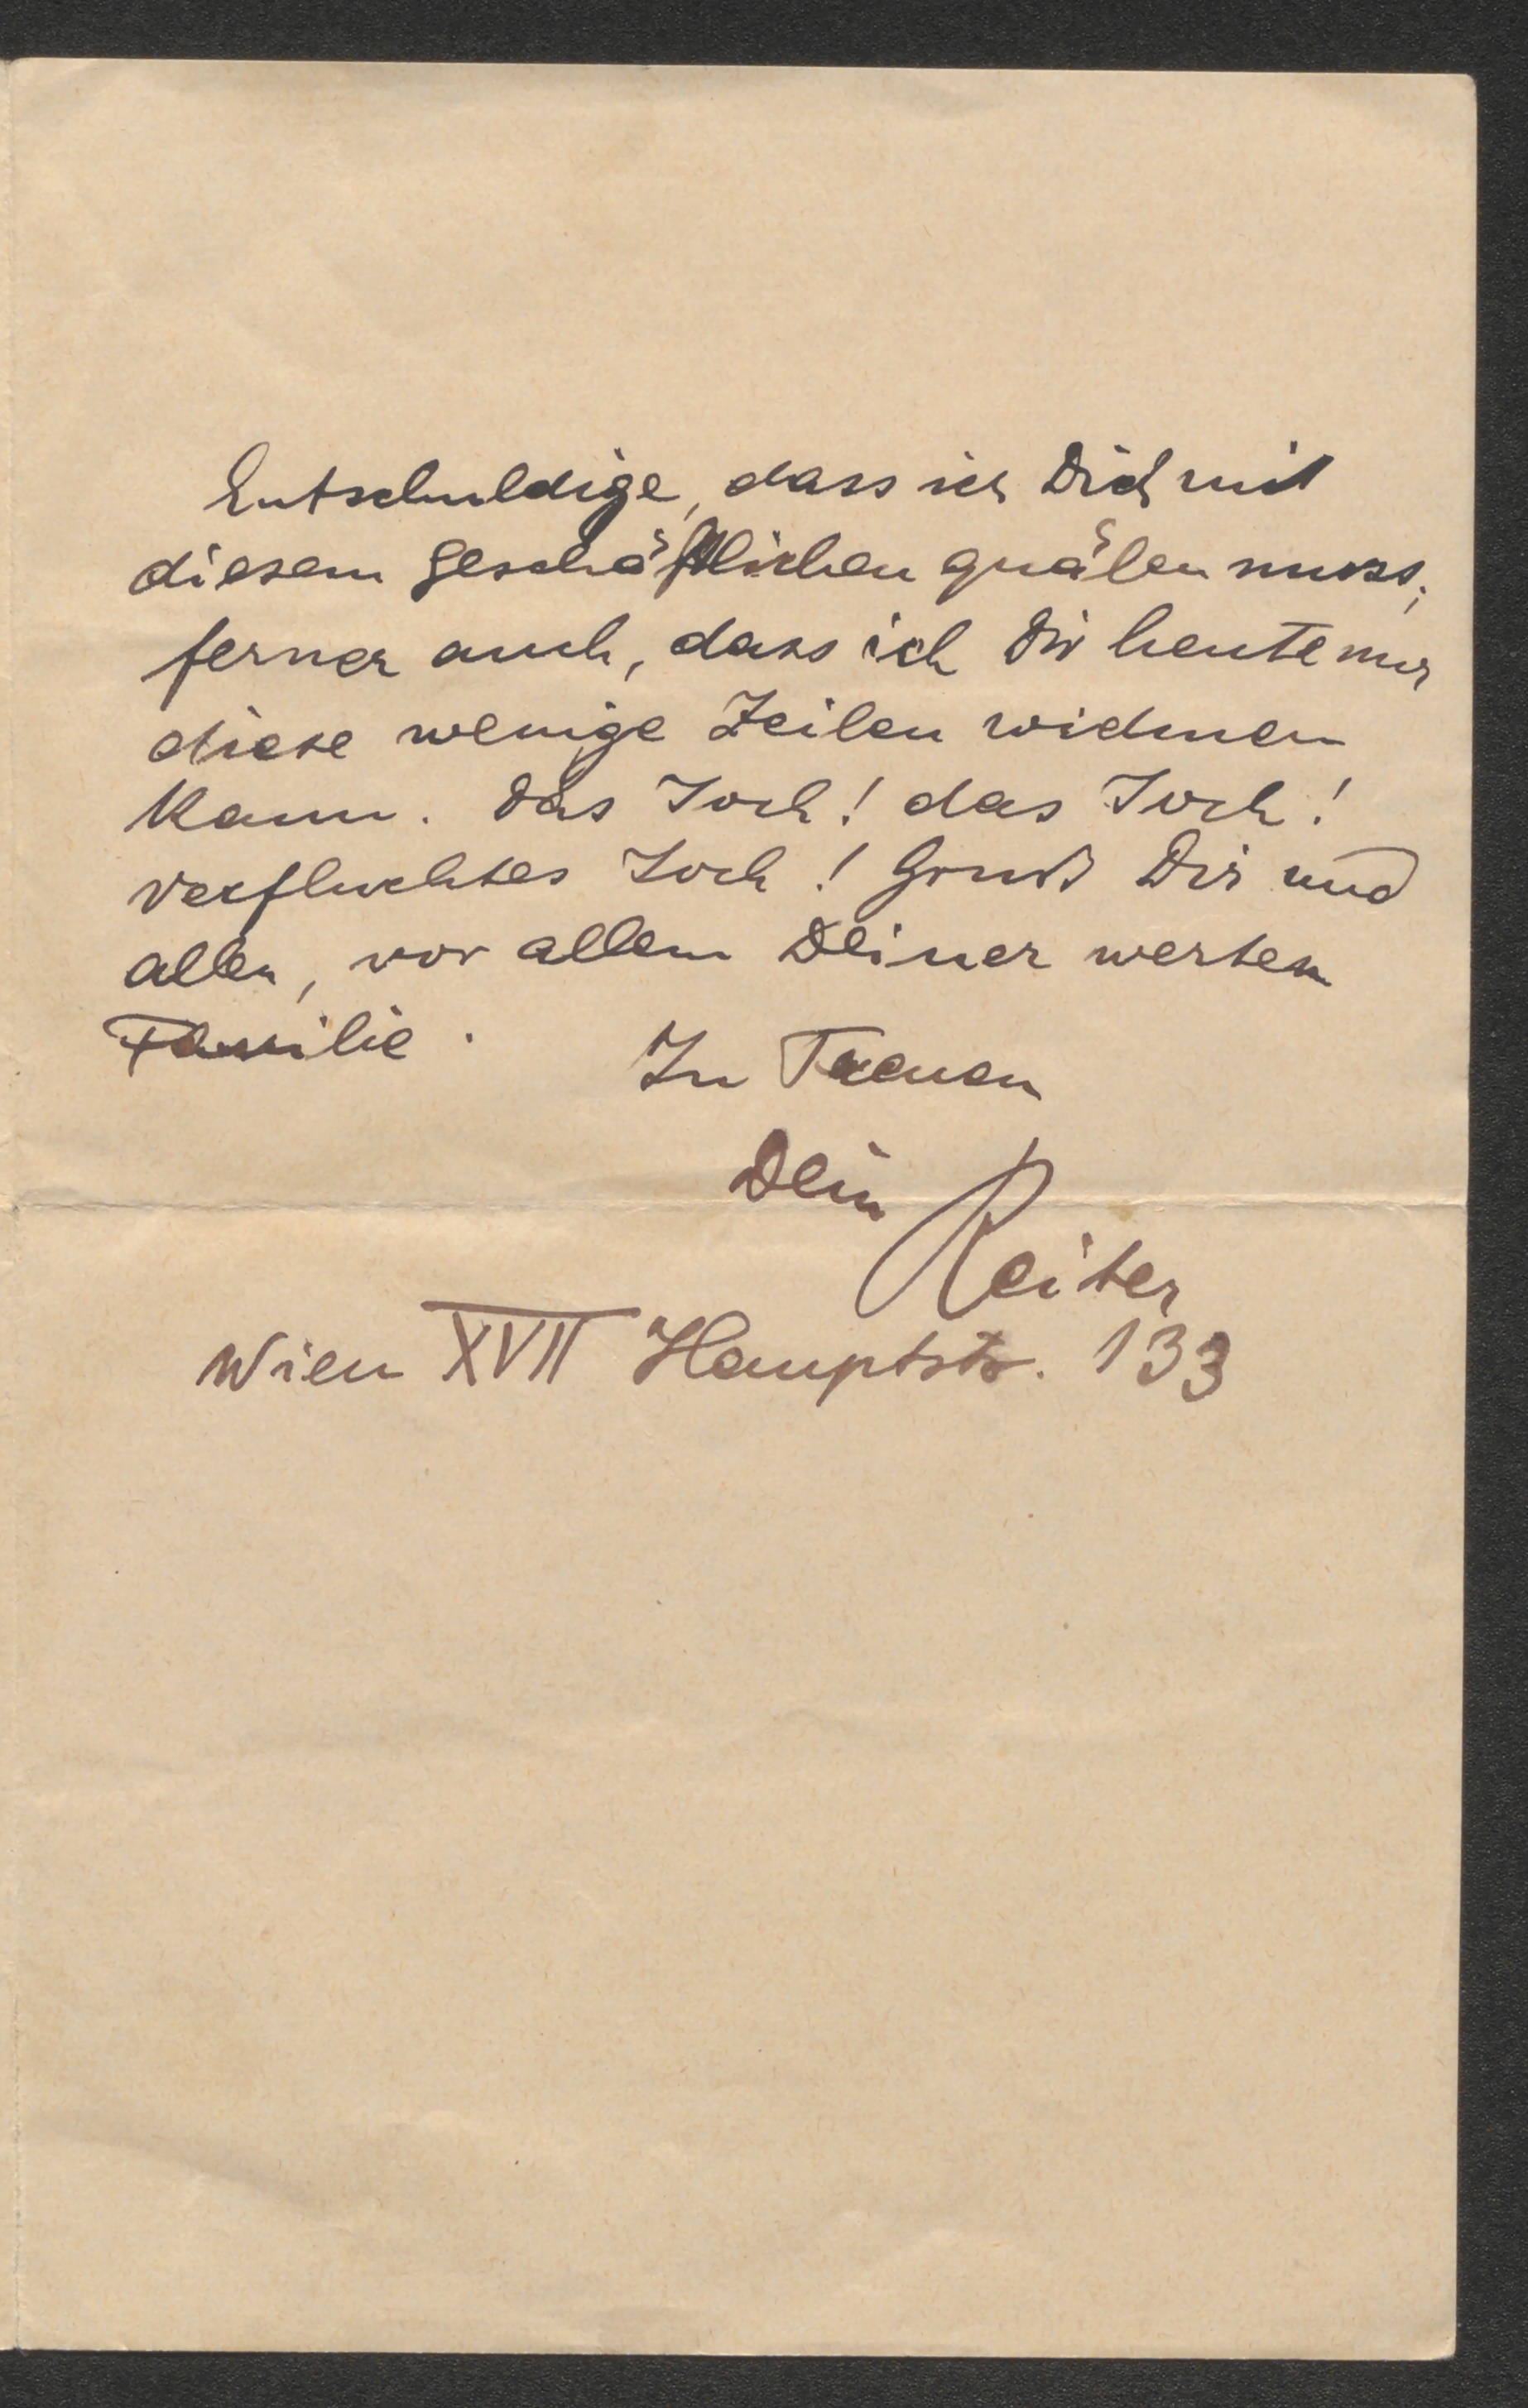 Entschuldige, dass ich Dich mit
diesem geschäftlichen quälen muss,
ferner auch, dass ich Dir heute nur
diese wenige Zeilen widmen
kann. Das Joch! das Joch!
verfluchtes Joch! Gruß Dir und
allen, vor allem Deiner werten
Familie.
In Treuen
Dein
Reiter
Wien XVII Hauptstr. 133